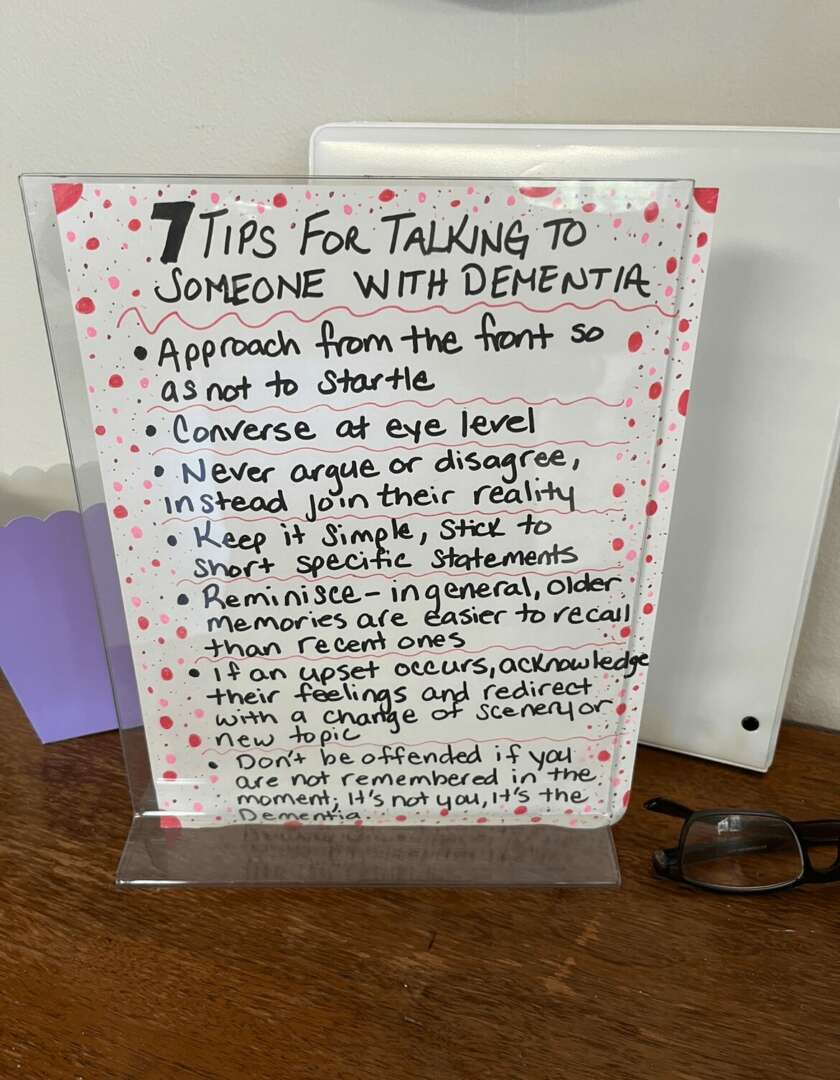 7 TIPS FOR TALKING TO
SOMEONE WITH DEMENTIA
• Approach from the front so
as not to startle
• Converse at eye level
• Never argue or disagree,
instead join their reality
• Keep it simple, stick to
short specific statements
• Reminisce - in general, older
memories are easier to recall
than recent ones
• If an upset occurs, acknowledge
their feelings and redirect
with a change of scenery or
new topic
• Don't be offended if you
are not remembered in the
moment; It's not you, it's the
Dementia.